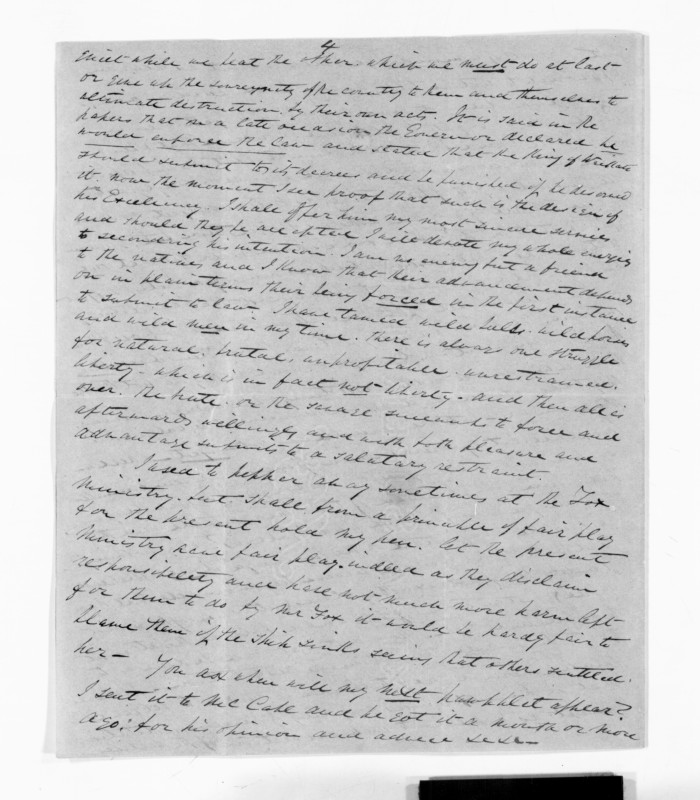 4
quiet while we beat the other. which we must do at last
or give up the sovereignty of the country to them and themselves to
ultimate destruction by their own acts. It is said in the
papers that on a late occasion the Governor declared he
would enforce the law and stated that the King of
should submit to its decrees and be punished if he deserved
it. Now the moment I see proof that such is the design of
his Excellency. I shall offer him my most sincere services
and should they be accepted I will devote my whole energies
to seconding his intention. I am no enemy but a friend
to the natives and I know that their advancement depends
on in plain terms their being forced in the first instance
to submit to law. I have tamed wild bulls. wild horses
and wild men in my time. there is always one struggle
for natural. brutal. unprofitable. unrestrained.
liberty. which is in fact not liberty - and then all is
over. the brute. or the savage succumbs to force and
afterwards willingly and with both pleasure and
advantage submits to a salutary restraint.
I used to pepper away sometimes at the Fox
Ministry. but shall from a principle of fair play
for the present hold my pen. let the present
Ministry have fair play. indeed as they disclaim
responsibility and have not much more harm left
for them to do by Mr Fox it would be hardy fair to
blame them if the ship sinks seeing that others scuttled
her -   You ask when will my next pamphlet appear?
I sent it to and he got it a month or more
ago: for his opinion and advice